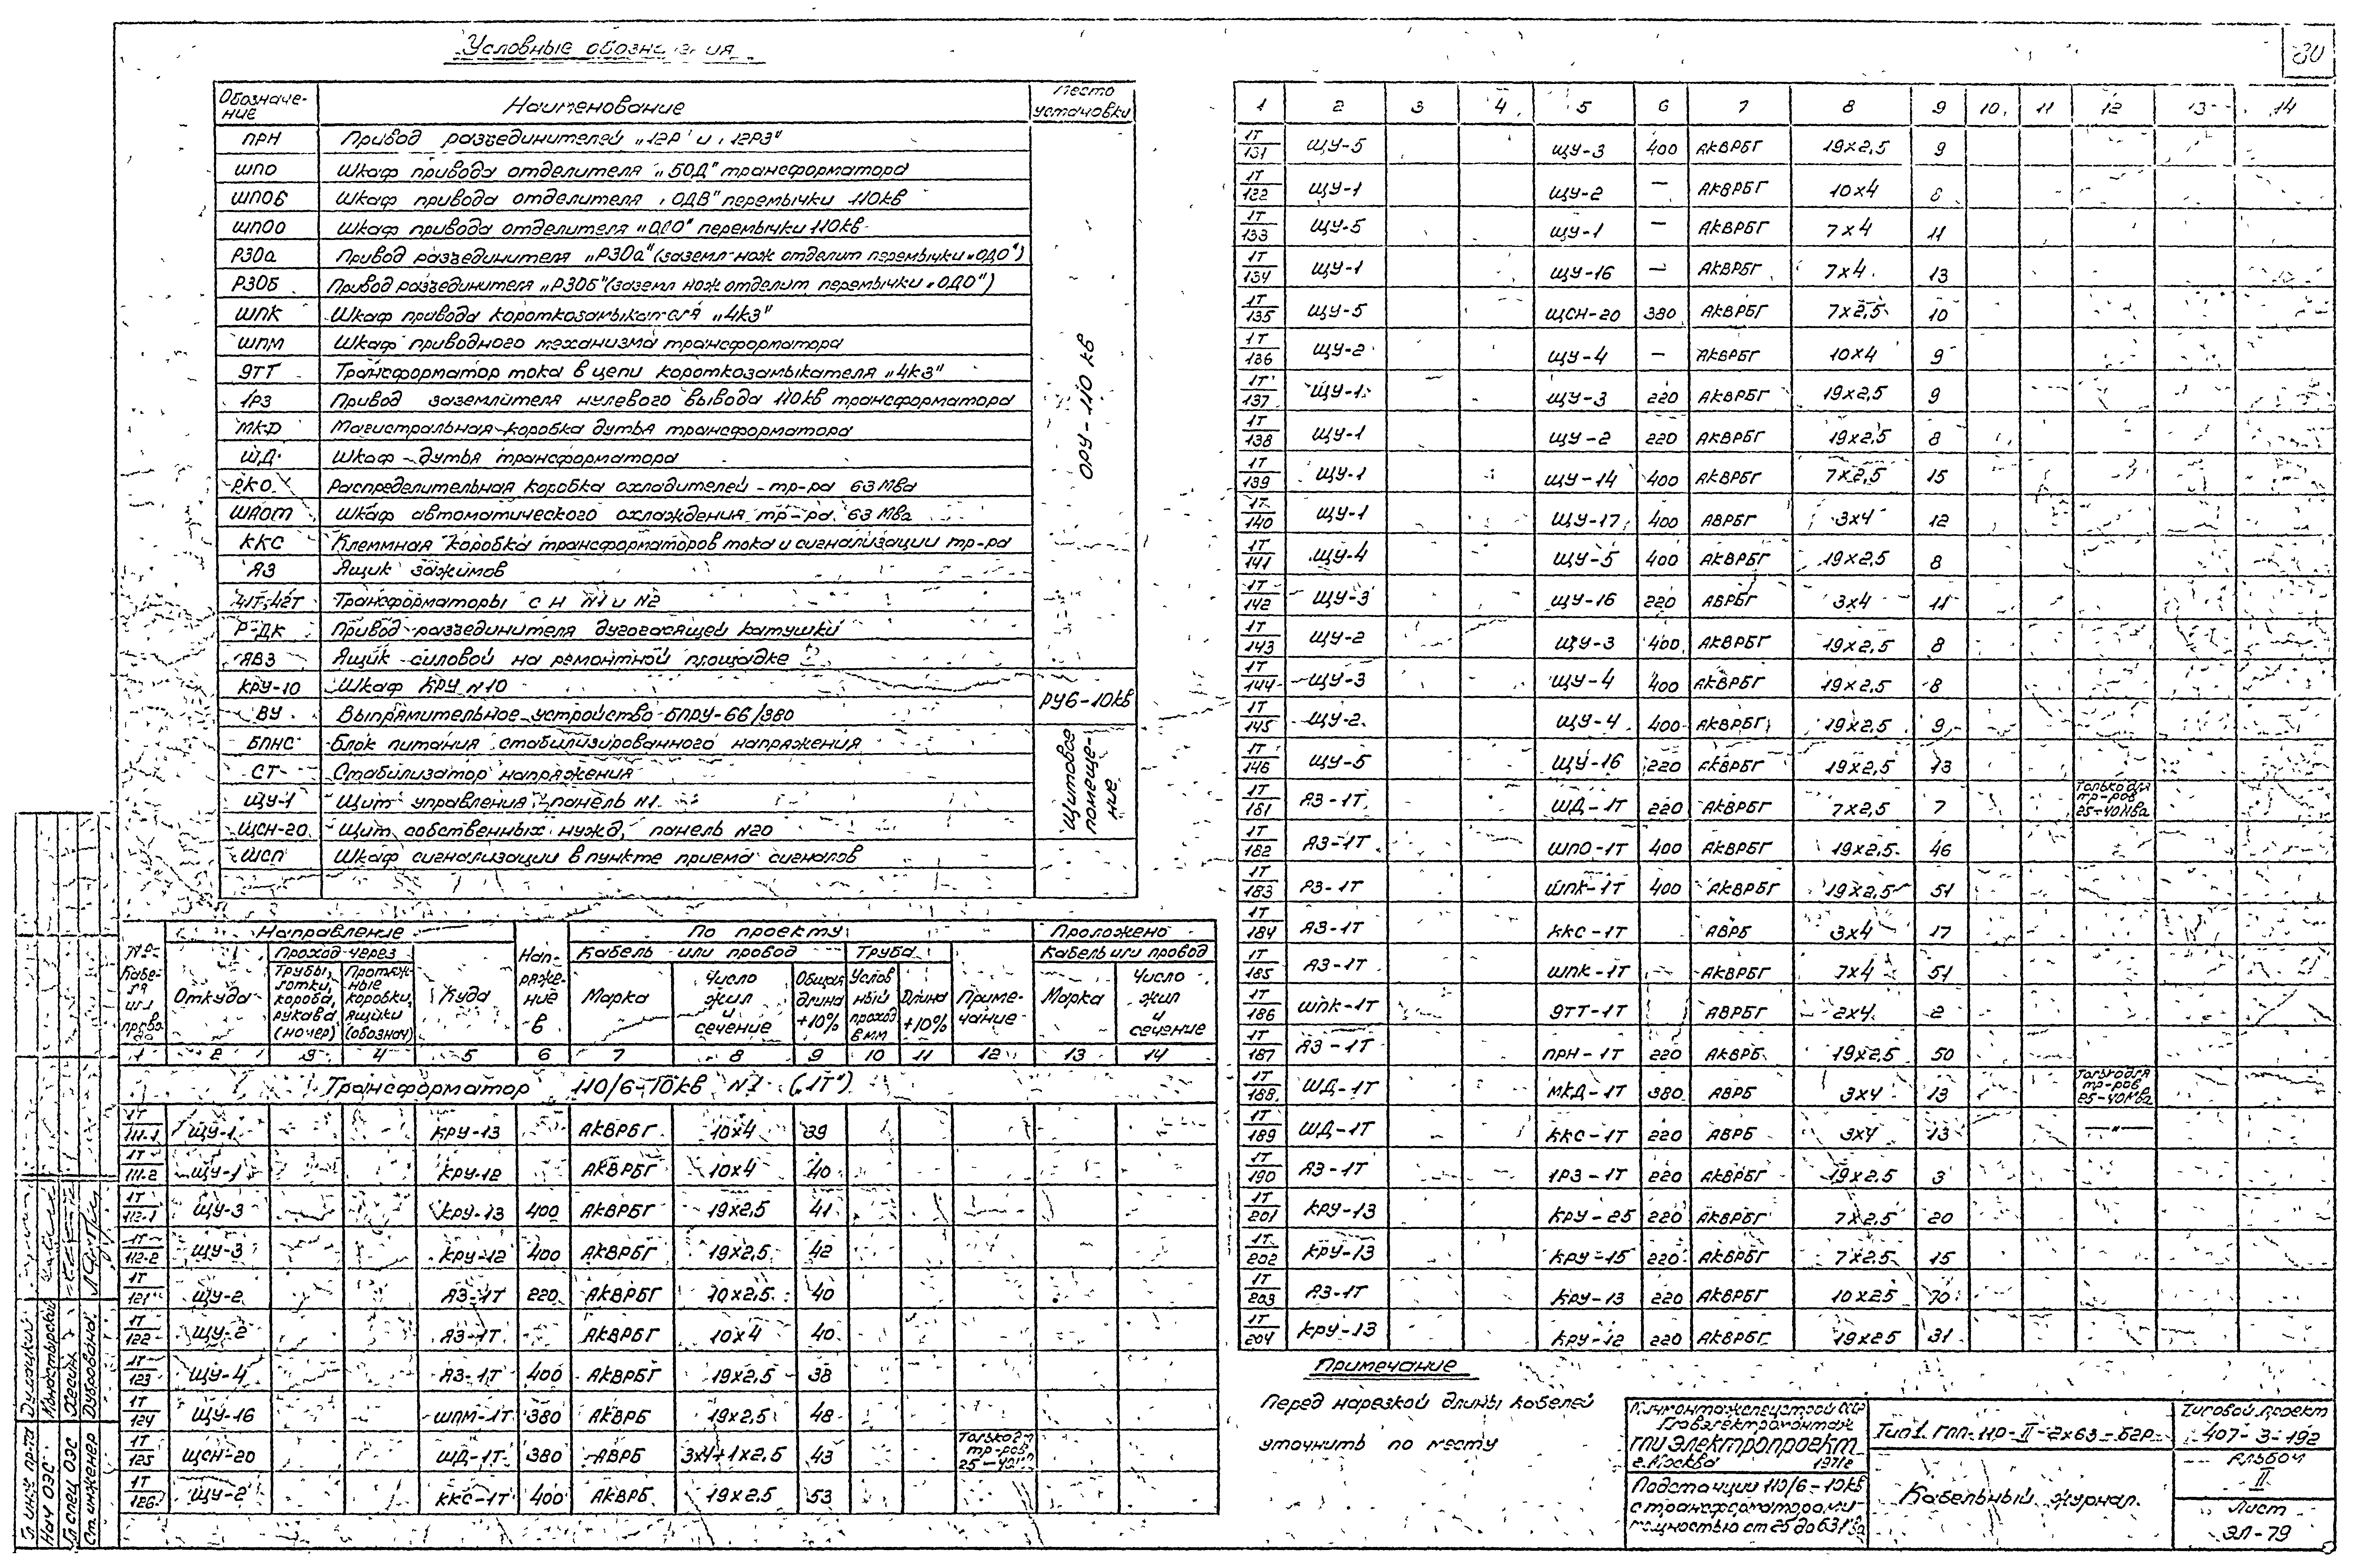 30
Условные обозначения
Обозначе-ние | Наименование | Место установки
ПРН | Привод разъединителей „12Р" и „12РЗ"
ШПО | Шкаф привода отделителя „5ОД" трансформатора
ШПОВ | Шкаф привода отделителя „ОДВ" перемычки 110кв
ШПОО | Шкаф привода отделителя „ОДО" перемычки 110кв
РЗОа | Привод разъединителя „РЗОа" (заземл нож отделит перемычки „ОДО")
РЗОБ | Привод разъединителя „РЗОБ" (заземл нож отделит перемычки „ОДО")
ШПК | Шкаф привода короткозамыкателя „4КЗ"
ШПМ | Шкаф приводного механизма трансформатора
9ТТ | Трансформатор тока в цепи короткозамыкателя „4КЗ"
1РЗ | Привод заземлителя нулевого вывода 110кв трансформатора
МКД | Магистральная коробка дутья трансформатора
ШД | Шкаф дутья трансформатора
РКО | Распределительная коробка охладителей тр-ра 63 Мва
ШАОТ | Шкаф автоматического охлаждения тр-ра 63 Мва
ККС | Клеммная коробка трансформаторов тока и сигнализации тр-ра
ЯЗ | Ящик зажимов
41Т, 42Т | Трансформаторы с н N1 и N2
Р-ДК | Привод разъединителя дугогасящей катушки
ЯВЗ | Ящик силовой на ремонтной площадке
ОРУ-110 кв
КРУ-10 | Шкаф КРУ N10
ВУ | Выпрямительное устройство БПРУ-66/380
РУ6-10кв
БПНС | Блок питания стабилизированного напряжения
СТ | Стабилизатор напряжения
ЩУ-1 | Щит управления, панель N1
ЩСН-20 | Щит собственных нужд, панель N20
Щитовое помеще-ние
ШСП | Шкаф сигнализации в пункте приема сигналов
№ кабе-ля или прово-да | Направление | Нап-ряже-ние в | По проекту | Проложено
Откуда | Проход через | Куда | Кабель или провод | Труба | Приме-чание | Кабель или провод
Трубы, лотки, короба, рукава (номер) | Протяж-ные коробки, ящики (обознач) | Марка | Число жил и сечение | Общая длина +10% | Услов ный проход в мм | Длина +10% | Марка | Число жил и сечение
1 | 2 | 3 | 4 | 5 | 6 | 7 | 8 | 9 | 10 | 11 | 12 | 13 | 14
Трансформатор 110/6-10кв N1 („1Т")
1Т/111-1 | ЩУ-1 | КРУ-13 | АКВРБГ | 10х4 | 39
1Т/111-2 | ЩУ-1 | КРУ-12 | АКВРБГ | 10х4 | 40
1Т/112-1 | ЩУ-3 | КРУ-13 | 400 | АКВРБГ | 19х2,5 | 41
1Т/112-2 | ЩУ-3 | КРУ-12 | 400 | АКВРБГ | 19х2,5 | 42
1Т/121 | ЩУ-2 | ЯЗ-1Т | 220 | АКВРБГ | 10х2,5 | 40
1Т/122 | ЩУ-2 | ЯЗ-1Т | АКВРБГ | 10х4 | 40
1Т/123 | ЩУ-4 | ЯЗ-1Т | 400 | АКВРБГ | 19х2,5 | 38
1Т/124 | ЩУ-16 | ШПМ-1Т | 380 | АКВРБ | 19х2,5 | 48
1Т/125 | ЩСН-20 | ШД-1Т | 380 | АВРБ | 3х4+1х2,5 | 43 | только дл тр-ров 25-40
1Т/126 | ЩУ-2 | ККС-1Т | 400 | АКВРБ | 19х2,5 | 53
1 | 2 | 3 | 4 | 5 | 6 | 7 | 8 | 9 | 10 | 11 | 12 | 13 | 14
1Т/131 | ЩУ-5 | ЩУ-3 | 400 | АКВРБГ | 19х2,5 | 9
1Т/122 | ЩУ-1 | ЩУ-2 | — | АКВРБГ | 10х4 | 8
1Т/133 | ЩУ-5 | ЩУ-1 | — | АКВРБГ | 7х4 | 11
1Т/134 | ЩУ-1 | ЩУ-16 | — | АКВРБГ | 7х4 | 13
1Т/135 | ЩУ-5 | ЩСН-20 | 380 | АКВРБГ | 7х2,5 | 10
1Т/136 | ЩУ-2 | ЩУ-4 | — | АКВРБГ | 10х4 | 9
1Т/137 | ЩУ-1 | ЩУ-3 | 220 | АКВРБГ | 19х2,5 | 9
1Т/138 | ЩУ-1 | ЩУ-2 | 220 | АКВРБГ | 19х2,5 | 8
1Т/139 | ЩУ-1 | ЩУ-14 | 400 | АКВРБГ | 7х2,5 | 15
1Т/140 | ЩУ-1 | ЩУ-17 | 400 | АВРБГ | 3х4 | 12
1Т/141 | ЩУ-4 | ЩУ-5 | 400 | АКВРБГ | 19х2,5 | 8
1Т/142 | ЩУ-3 | ЩУ-16 | 220 | АВРБГ | 3х4 | 11
1Т/143 | ЩУ-2 | ЩУ-3 | 400 | АКВРБГ | 19х2,5 | 8
1Т/144 | ЩУ-3 | ЩУ-4 | 400 | АКВРБГ | 19х2,5 | 8
1Т/145 | ЩУ-2 | ЩУ-4 | 400 | АКВРБГ | 19х2,5 | 9
1Т/146 | ЩУ-5 | ЩУ-16 | 220 | АКВРБГ | 19х2,5 | 13
1Т/181 | ЯЗ-1Т | ШД-1Т | 220 | АКВРБГ | 7х2,5 | 7 | Только для тр-ров 25-40Мва
1Т/182 | ЯЗ-1Т | ШПО-1Т | 400 | АКВРБГ | 19х2,5 | 46
1Т/183 | ЯЗ-1Т | ШПК-1Т | 400 | АКВРБГ | 19х2,5 | 51
1Т/184 | ЯЗ-1Т | ККС-1Т | АВРБ | 3х4 | 17
1Т/185 | ЯЗ-1Т | ШПК-1Т | АКВРБГ | 7х4 | 51
1Т/186 | ШПК-1Т | 9ТТ-1Т | АВРБГ | 2х4 | 2
1Т/187 | ЯЗ-1Т | ПРН-1Т | 220 | АКВРБ | 19х2,5 | 50
1Т/188 | ШД-1Т | МКД-1Т | 380 | АВРБ | 3х4 | 13 | только для тр-ров 25-40Мва
1Т/189 | ШД-1Т | ККС-1Т | 220 | АВРБ | 3х4 | 13 | —"—
1Т/190 | ЯЗ-1Т | 1РЗ-1Т | 220 | АКВРБГ | 19х2,5 | 3
1Т/201 | КРУ-13 | КРУ-25 | 220 | АКВРБГ | 7х2,5 | 20
1Т/202 | КРУ-13 | КРУ-15 | 220 | АКВРБГ | 7х2,5 | 15
1Т/203 | ЯЗ-1Т | КРУ-13 | 220 | АКВРБГ | 10х2,5 | 70
1Т/204 | КРУ-13 | КРУ-12 | 220 | АКВРБГ | 19х2,5 | 31
Примечание
Перед нарезкой длины кабелей
уточнить по месту
Минмонтажспецстрой СССР
Главэлектромонтаж
ГПИ Электропроект
г. Москва 1971г
Подстанции 110/6-10кв
с трансформаторами
мощностью от 25 до 63 Мва
Тип1 ГПП-110-II-2х63-Б2Р
Кабельный журнал.
Типовой проект
407-3-192
Альбом
II
Лист
ЭЛ-79
Гл инж пр-та Дусацкий
Нач ОЭС
Гл спец ОЭС
Ст. инженер